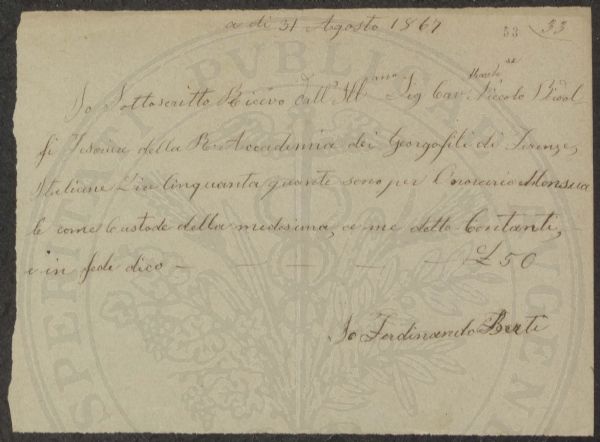 a di 31 Agosto 1867
53 53
Io Sottoscritto Ricevo dall' Ill.mo Sig Cav. March.se Niccolo Ridol
fi Tesoriere della R. Accademia dei Georgofili di Firenze,
Italiane Lire Cinquanta quante sono per l'onorario Mensua
le come Custode della medesima, a me detto Contanti,
e in fede dico — — — — — £ 50
Io Ferdinando Berti
PUBLICAE